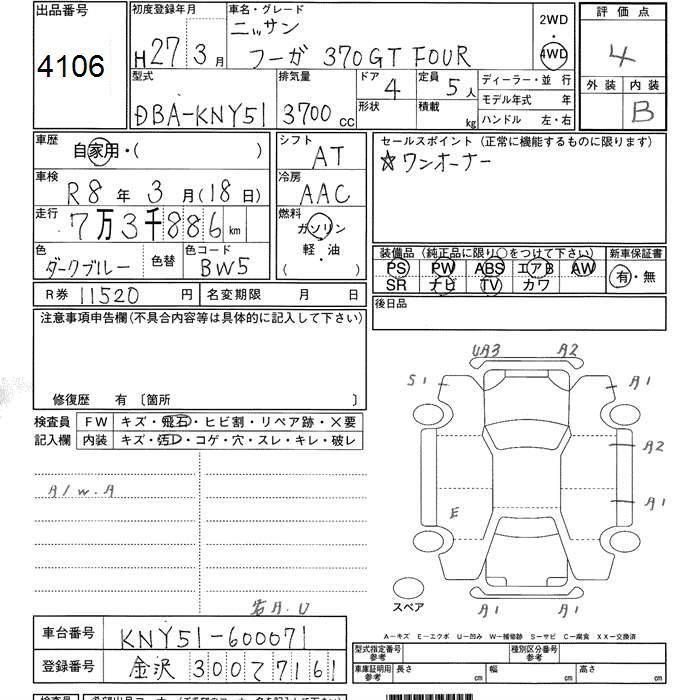 出品番号 4106
初度登録年月 H27年3月
車名・グレード ニッサン フーガ 370GT FOUR
2WD・4WD
評価点 4
外装 内装 B
型式 DBA-KNY51
排気量 3700 cc
ドア 4
形状
定員 5人
積載 kg
ディーラー・並行
モデル年式 年
ハンドル 左・右
車歴 自家用・( )
シフト AT
セールスポイント (正常に機能するものに限ります)
☆ワンオーナー
車検 R8年3月(18日)
冷房 AAC
走行 7万3千886km
燃料 ガソリン・軽・油 ( )
色 ダークブルー 色替
色コード BW5
装備品 (純正品に限り○をつけて下さい)
PS PW ABS エアB AW
SR ナビ TV カワ
新車保証書 有・無
R券 11520 円 名変期限 月 日
後日品
注意事項申告欄(不具合内容等は具体的に記入して下さい)
修復歴 有 〔箇所 〕
検査員記入欄
FW キズ・飛石・ヒビ割・リペア跡・×要
内装 キズ・汚レ・コゲ・穴・スレ・キレ・破レ
A/W.A
UA3 A2
S1 A1
A2
A1
E
A1 A1
スペア
A-キズ E-エクボ U-凹み W-補修跡 S-サビ C-腐食 XX-交換済
車台番号 KNY51-600071
登録番号 金沢 300 7161
型式指定番号 参考
種別区分番号 参考
車庫証明用 参考 長さ cm 幅 cm 高さ cm